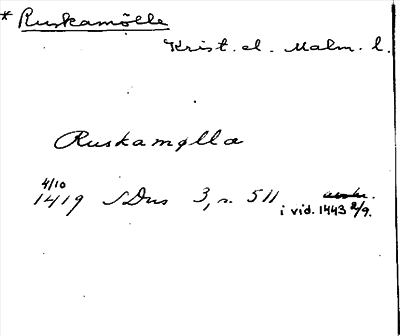 * Ruskamölle
Krist. el. Malm. l.
Ruskamølla
4/10
1419 SDns 3, s. 511
i vid. 1443 2/9.